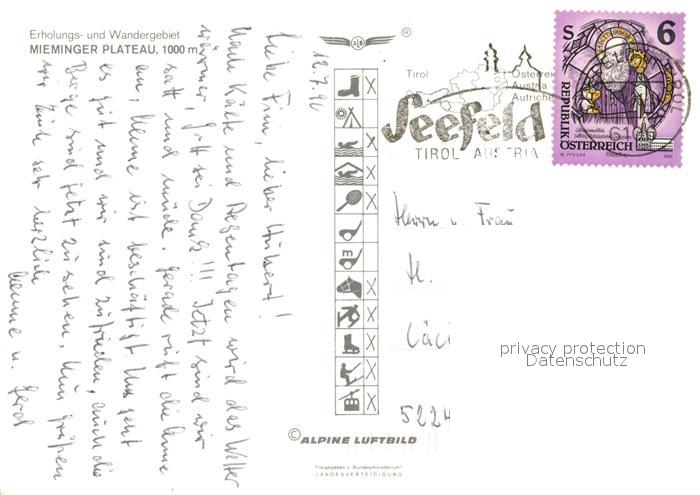 Erholungs- und Wandergebiet
MIEMINGER PLATEAU, 1000 m
12.7.
Liebe Frui, lieber Hubert!
Nach Kälte und Regentagen wird das Wetter
wärmer, Gott sei Dank!!! Jetzt sind wir
satt und müde, gerade ruft die Anne
an, Menne ist beschäftigt. Uns geht
es gut und wir sind zufrieden, auch die
Berge sind jetzt zu sehen. Nun grüßen
wir Euch sehr herzlich
Menne u. Gerd
®
m
© ALPINE LUFTBILD
Freigegeben v. Bundesministerium f.
LANDESVERTEIDIGUNG
Tirol
Österrei
Austria
Autriche
Seefeld
TIROL AUSTRIA
610
TIROL
S 6
REPUBLIK
ÖSTERREICH
Herrn u. Frau
H.
Cäci
5224
privacy protection
Datenschutz